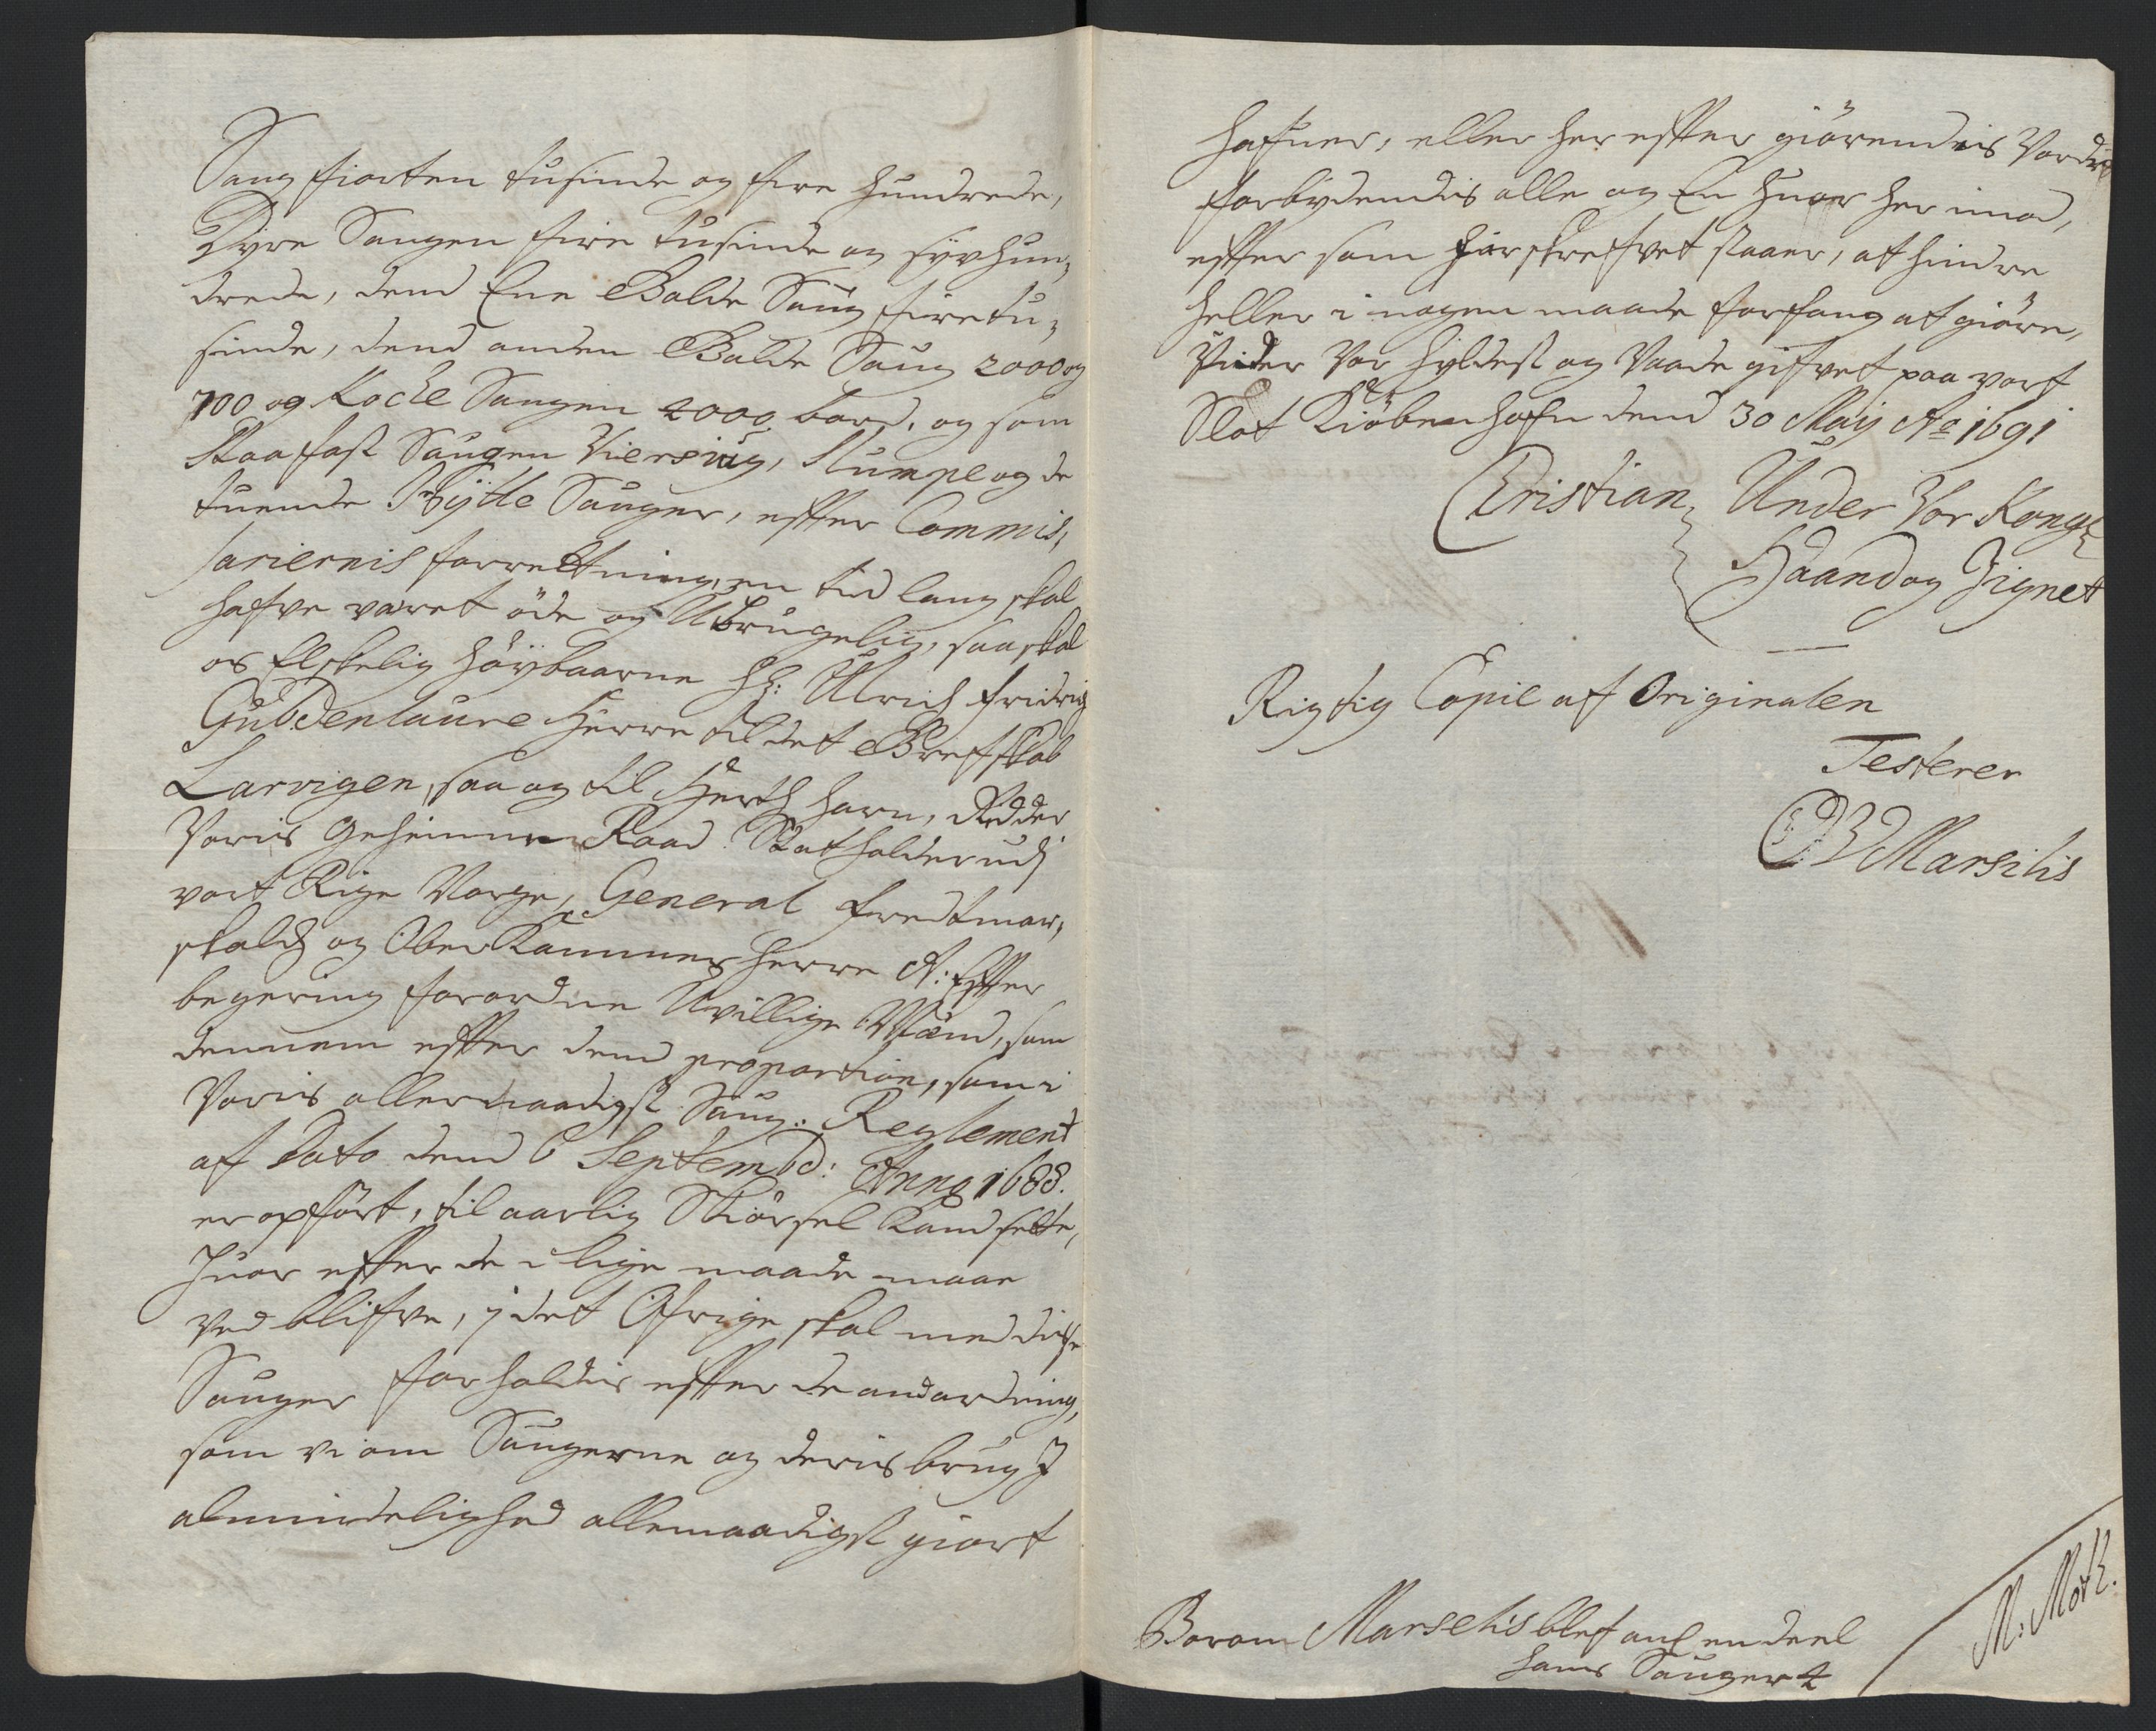 Saug fiorten tusinde og fire hundrede,
Dÿre Saugen fire tusinde og syvhun-
drede, dend Ene Bolde Saug firetu-
sinde, dend anden Bolde Saug 2000 og
700 og Kocke Saugen 2000 bord, og som
Staafast Saugen Kiersiug, Stumpe og de
tuende Hÿtte Sauger, efter Commis-
sariernis forretning, en tid lang skal
hafve været öde og Ubrugelig, saa skal
os Elskelig höybaarne Hr: Ulrich Fridrig
Guldenleuve Herre til det Grefskab
Larvigen, saa og til Hertz horn, Ridder
Voris Geheimme Raad Statholder udj
vort Rige Norge, General Feldtmar-
skalch og Ober Kammer herre A: Efter
begering forordne Uvillige Mænd, som
dennem efter dend proportion, som i
Voris allernaadigst Saug: Reglement
af Dato dend 6 Septembd: Anno 1688.
er opfört, til aarlig Skiørsel kand sette,
huor efter de i lige maade maae
ved blifve, j det Öfrige skal med disse
Sauger forholdis efter de anordning,
som vi om Saugerne og deris brug J
almindelighed allernaadigst giort
hafuer, eller her effter giörendis Vorder
forbydendis alle og En huer her imod,
efter som forskrefvet staaer, at hindre
heller i nogen maade forfang at giöre,
Under Vor hyldest og Naade gifvet paa vort
Slot Kiöbenhafn dend 30 Maÿ Ao 1691
Cristian, Under Vor Kongl
Haand og Zignet
Rigtig Copie af Originalen
Testerer
CW Marsilis
Boron Marselis blef anl en deel
hans Sauger
M: Mört.